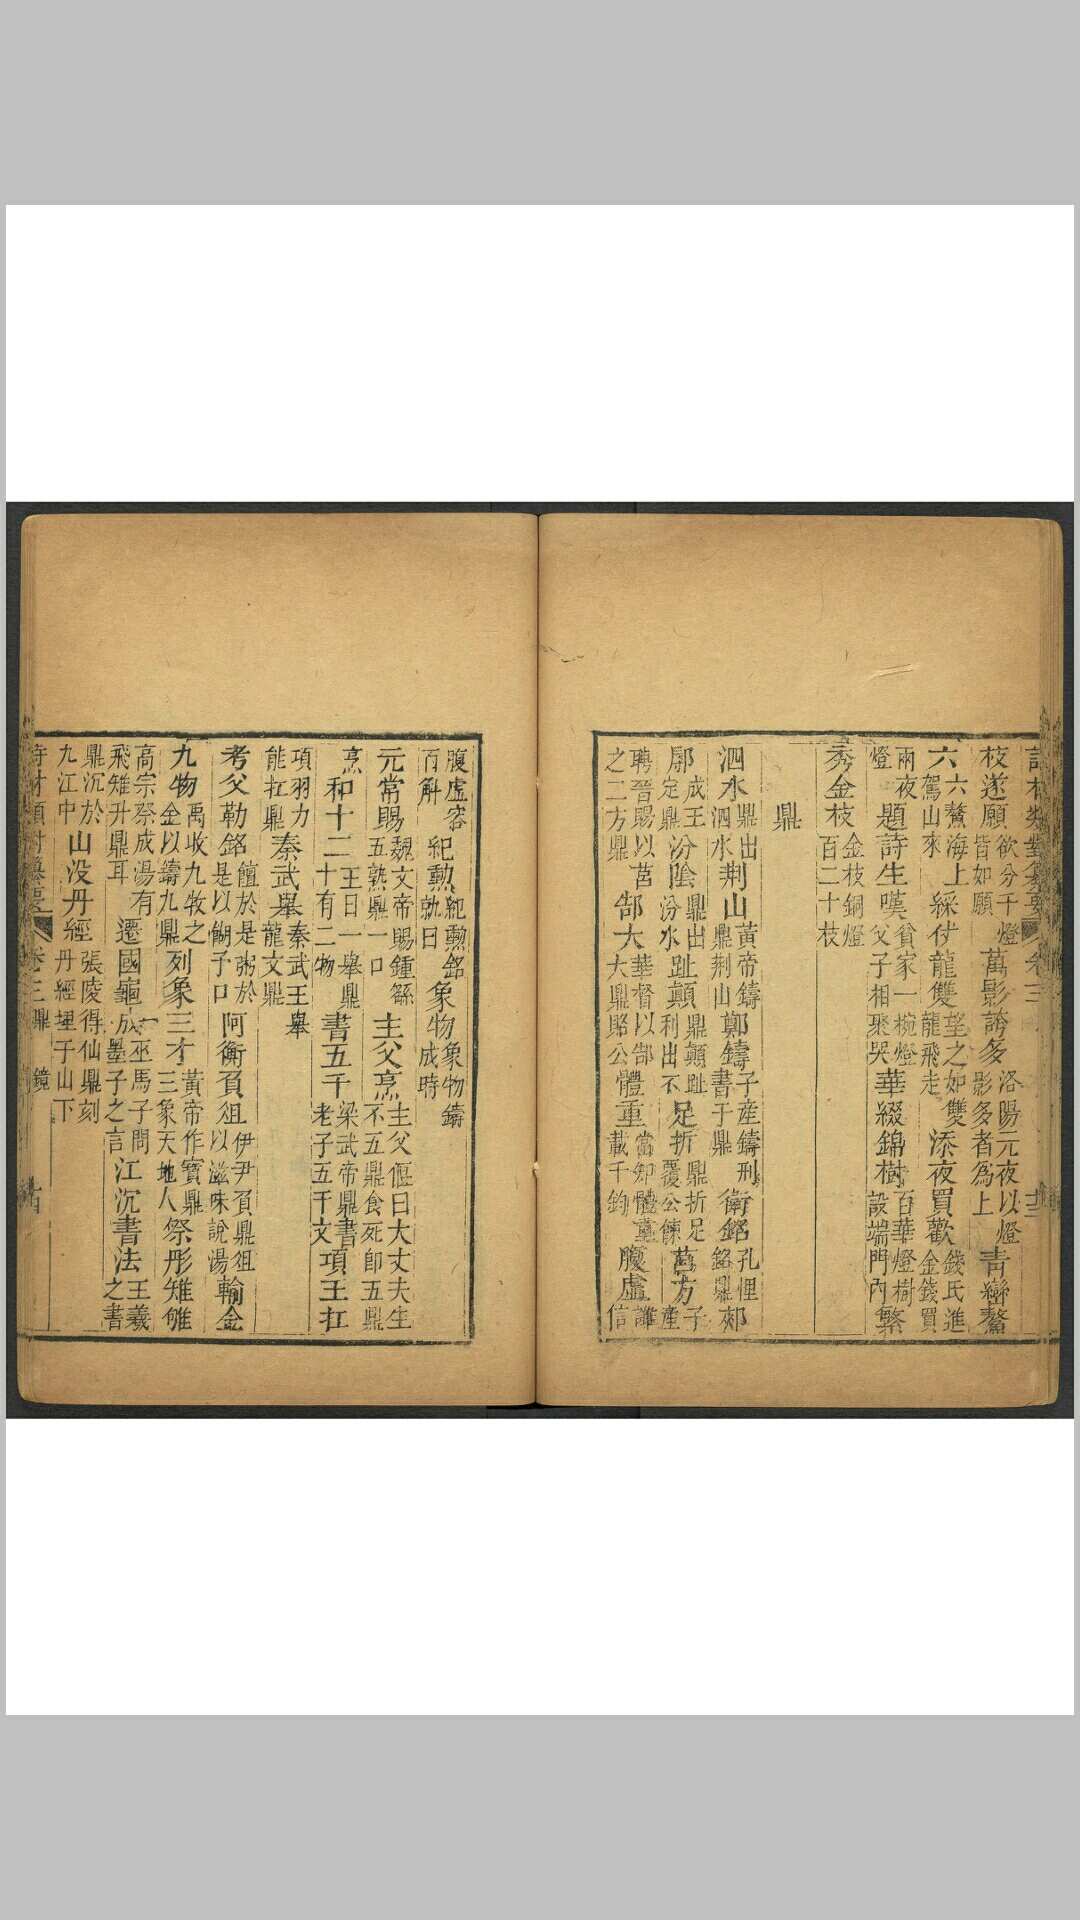 枝遂願欲分千燈皆如願萬影誇多洛陽元夜以燈影多者為上青巒鰲
六六鰲海上駕山來綵仗龍雙望之如雙龍飛走添夜買歡錢氏進金錢買
兩夜燈題詩生嘆貧家一椀燈父子相聚哭華綴錦樹百華燈樹設端門內繁
秀金枝金枝銅燈百二十枝
鼎
泗水鼎出泗水荆山黃帝鑄鼎荆山鄭鑄書子產鑄刑于鼎衛銘孔悝銘鼎郟
廓成王定鼎汾陰鼎出汾水趾顛鼎顛趾利出不足折鼎折足覆公餗莒方子產
聘晉賜以莒之二方鼎郜大華督以郜大鼎賂公體重當卸體重載千鈞腹虛讙信
腹虛容百斛紀勲紀勲銘軌日象物象物鑄成時
元常賜魏文帝賜鍾繇五熟鼎一口主父烹主父偃曰大丈夫生不五鼎食死即五鼎
烹和十二王曰一舉鼎十有二物書五千梁武帝鼎書老子五千文項王扛
項羽力能扛鼎秦武舉秦武王舉龍文鼎
考父勒銘饘於是粥於是以餬予口阿衡負俎伊尹負鼎俎以滋味說湯輸金
九物禹收九牧之金以鑄九鼎列象三才黃帝作寶鼎三象天地人祭肜雉雊
高宗祭成湯有飛雉升鼎耳遷國龜成巫馬子問墨子之言江沉書法王羲之書
鼎沉於九江中山没丹經張陵得仙鼎刻丹經埋于山下
卷三鼎 鏡